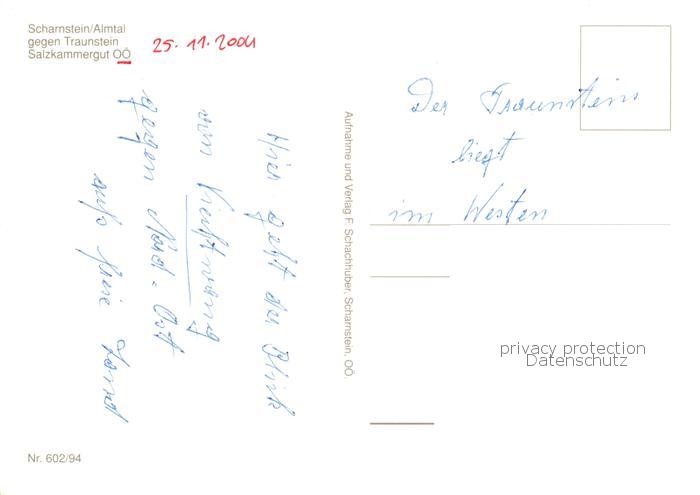 Scharnstein/Almtal
gegen Traunstein
Salzkammergut OÖ
25. 11. 2004
Hier geht der Blick
von
gegen Nord-Ost
aufs freie Land
Aufnahme und Verlag F. Schachhuber, Scharnstein, OÖ.
Der Traunstein
liegt
im Westen
privacy protection
Datenschutz
Nr. 602/94